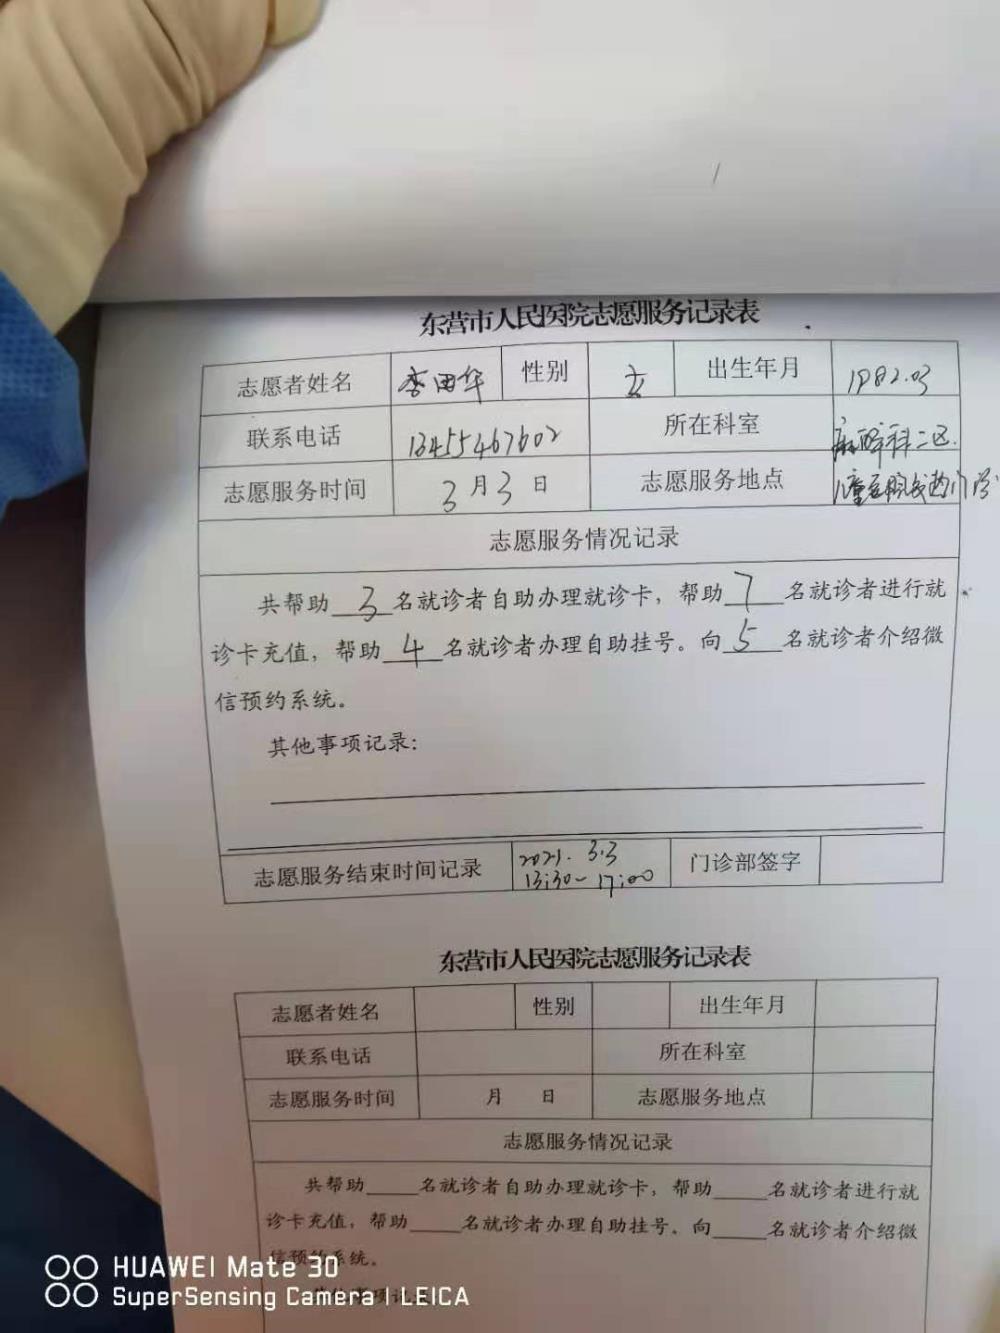 东营市人民医院志愿服务记录表
志愿者姓名 李田华 性别 女 出生年月 1982.03
联系电话 13455467602 所在科室 麻醉科二区.
志愿服务时间 3月3日 志愿服务地点
志愿服务情况记录
共帮助3名就诊者自助办理就诊卡，帮助7名就诊者进行就
诊卡充值，帮助4名就诊者办理自助挂号。向5名就诊者介绍微
信预约系统。
其他事项记录：
志愿服务结束时间记录 2021.3.3 门诊部签字
13:30-17:00
东营市人民医院志愿服务记录表
志愿者姓名 性别 出生年月
联系电话 所在科室
志愿服务时间 月 日 志愿服务地点
志愿服务情况记录
共帮助____名就诊者自助办理就诊卡，帮助____名就诊者进行就
诊卡充值，帮助____名就诊者办理自助挂号。向____名就诊者介绍微
信预约系统。
HUAWEI Mate 30
SuperSensing Camera | LEICA